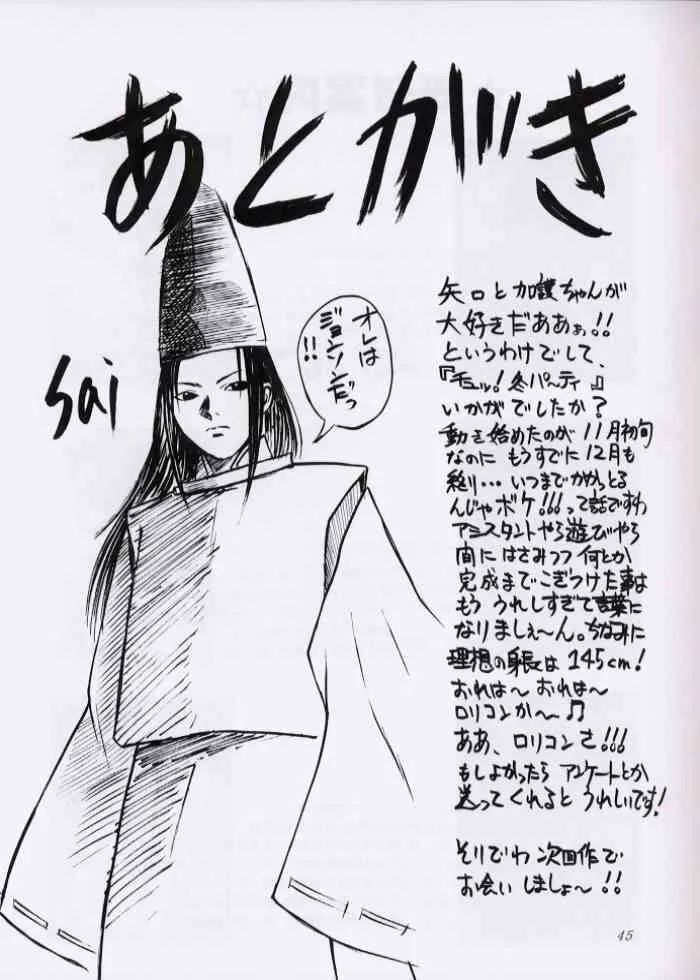 あとがき
sai
オレは
ジョンソンだっ
!!
矢口と加護ちゃんが
大好きだああぁ!!
というわけでして、
『モーッ!冬パーティ』
いかがでしたか?
動き始めたのが 11月初旬
なのに もうすでに12月も
終り… いつまでかかっとる
んじゃボケ!!!って話ですわ
アシスタントやら遊びやら
間にはさみつつ 何とか
完成までこぎつけた事は
もう うれしすぎて言葉に
なりましぇ〜ん。ちなみに
理想の身長は 145cm!
おれは〜 おれは〜
ロリコンか〜♫
ああ、ロリコンさ!!!
もしよかったら アンケートとか
送ってくれると うれしいです!
そりでわ 次回作で
お会いしましょ〜!!
45